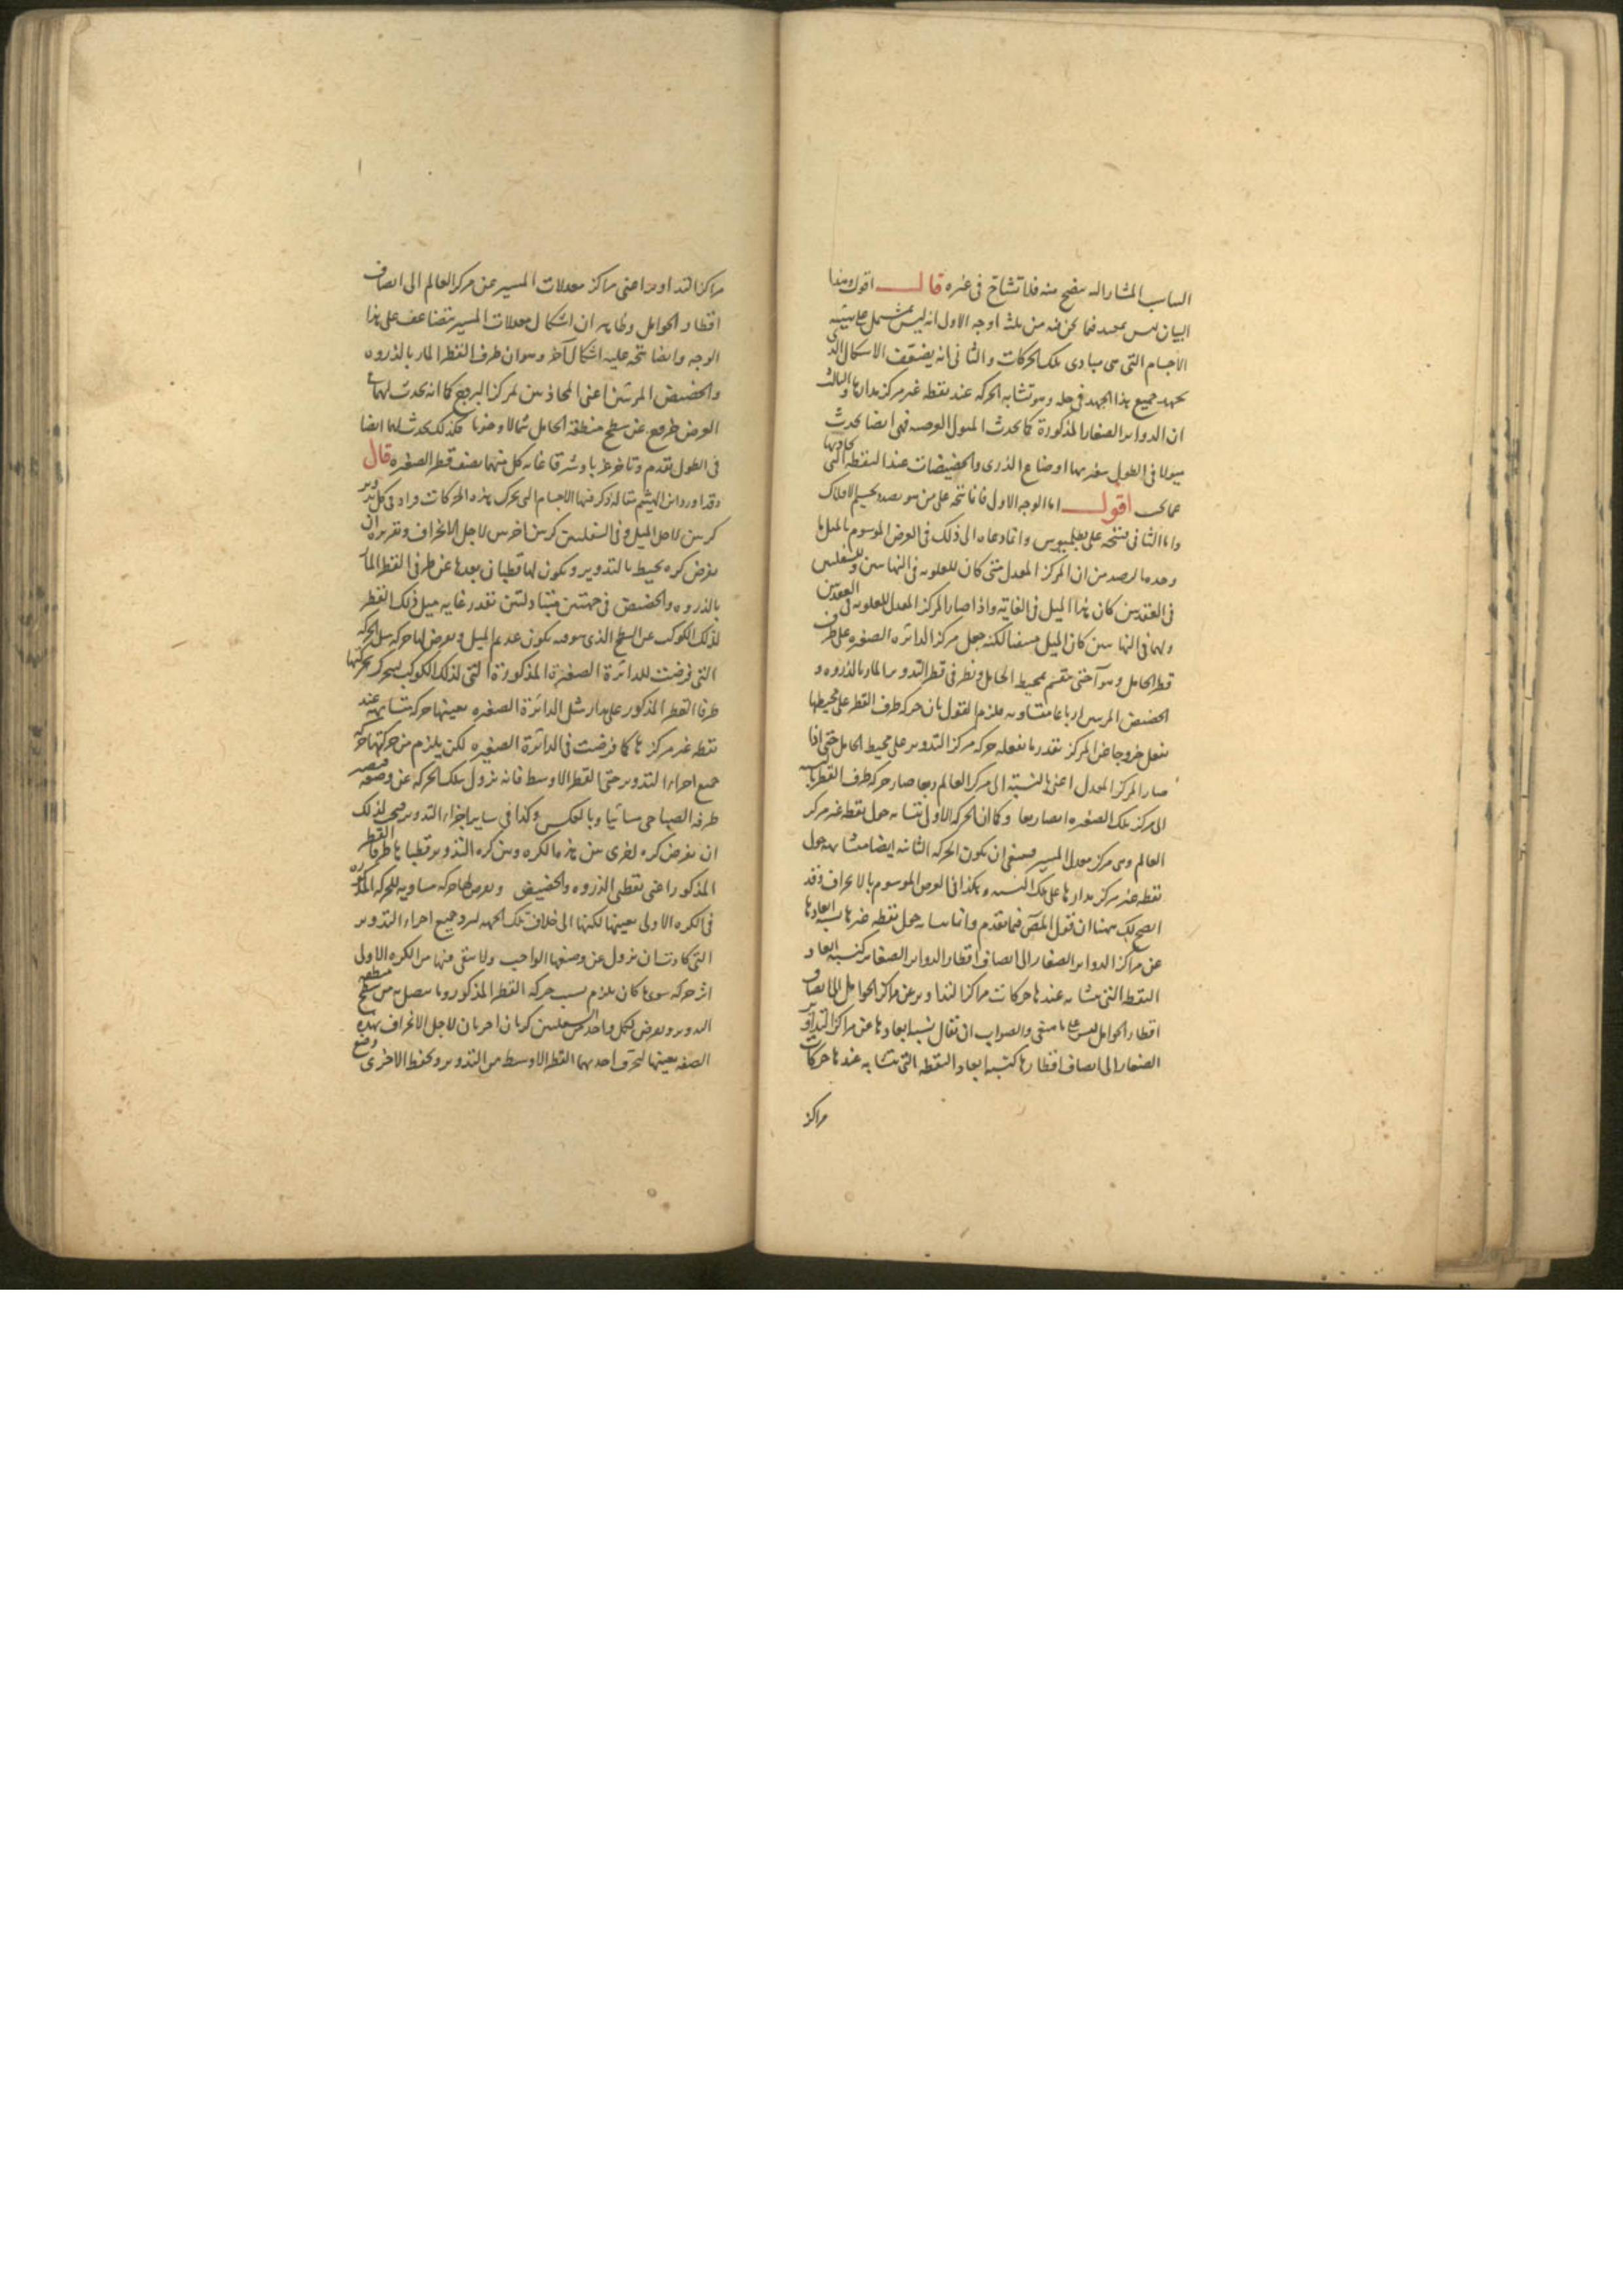 الباب المشار اليه يتضح منه فلا تشاح فى غيره قال اقول وهذا
البيان ليس بمفيد فيما نحن فيه من ثلثة اوجه الاول انه ليس بمشتمل على هيئة
الاجسام التى هى مبادى تلك الحركات والثانى انه يضعف الاشكال الذى
يجهد جميع هذا الجهد فى حله وهو تشابه الحركة عند نقطة غير مركز مدارها والثالث
ان الدواير الصغار المذكورة كما يحدث الميول العرضية فهى ايضا يحدث
ميولا فى الطول يتغير بها اوضاع الذرى والحضيضات عند النقطة التى
يحاذيها اقول اما الوجه الاول فانما يتجه على من هو بصدد تجسيم الافلاك
واما الثانى فيتجه على بطلميوس وانما دعاه الى ذلك فى العرض الموسوم بالميل ما
وجده بالرصد من ان المركز المعدل متى كان للعلوية فى النهايتين وللسفليين
فى العقدتين كان هذا الميل فى الغاية واذا صار المركز المعدل للعلوية فى العقدتين
ولهما فى النهايتين كان الميل منتفيا لكنه جعل مركز الدائرة الصغيرة على طرف
قطر الحامل وهو آخذ يقسم محيط الحامل ونظر فى قطر التدوير المار بالذروة و
الحضيض المرئيين ارباعا متساوية فلزم القول بان حركة طرف القطر على محيطها
يفعل خروجا عن المركز بقدر ما يفعله حركة مركز التدوير على محيط الحامل حتى اذا
صار المركز المعدل اعنى بالنسبة الى مركز العالم ربعا صار حركة طرف القطر بالنسبة
الى مركز تلك الصغيرة ايضا ربعا وكما ان الحركة الاولى تشابه حول نقطة غير مركز
العالم وهى مركز معدل المسير فينبغى ان يكون الحركة الثانية ايضا متشابهة حول
نقطة غير مركز مدارها على تلك النسبة وهكذا فى العرض الموسوم بالانحراف وقد
اتضح لك ههنا ان قول المص فيما تقدم وانما تشابه حول نقطة غيرها نسبة ابعادها
عن مراكز الدواير الصغار الى انصاف اقطار الدواير الصغار كنسبة ابعاد
النقطة التى تشابه عندها حركات مراكز التداوير عن مراكز الحوامل الى انصاف
اقطار الحوامل ليس على ما ينبغى والصواب ان يقال نسبة ابعادها عن مراكز الدواير
الصغار الى انصاف اقطارها كنسبة ابعاد النقطة التى تشابه عندها حركات
مراكز
مراكز التداوير اعنى مراكز معدلات المسير عن مركز العالم الى انصاف
اقطار الحوامل وظاهر ان اشكال معدلات المسير يتضاعف على هذا
الوجه وايضا يتجه عليه اشكال آخر وهو ان طرف القطر المار بالذروة
والحضيض المرئيين اعنى المحاذيين لمركز البروج كما انه يحدث لهما فى
العرض طرفى عن سطح منطقة الحامل شمالا وجنوبا فكذلك يحدث لهما ايضا
فى الطول تقدم وتأخر غربا وشرقا غاية كل منهما نصف قطر الصغيرة قال
وقد اورد ابن الهيثم مقالة ذكر فيها الاجسام التى تحرك بهذه الحركات فزاد فى كل تدوير
كرتين لاجل الميل وفى السفليين كرتين اخريين لاجل الانحراف وتقريره ان
يفرض كرة يحيط بالتدوير ويكون لها قطبان بعدها عن طرفى القطر المار
بالذروة والحضيض فى جهتين متبادلتين بقدر غاية ميل ذلك القطر
لذلك الكوكب عن السطح الذى هو فيه يكون عديم الميل ويعرض لها حركة مثل الحركة
التى فرضت للدائرة الصغيرة المذكورة التى لذلك الكوكب يتحرك بحركتها
طرفا القطر المذكور على مدار مثل الدائرة الصغيرة بعينها حركة متشابهة عند
نقطة غير مركزها كما فرضت فى الدائرة الصغيرة لكن يلزم من حركتها حركة
جميع اجزاء التدوير حتى القطر الاوسط فانه يزول بتلك الحركة عن وضعه فيصير
طرفه الصباحى مسائيا وبالعكس وكذا فى ساير اجزاء التدوير فيجب لذلك
ان يفرض كرة اخرى بين هذه الكرة وبين كرة التدوير قطباها طرفا القطر
المذكور اعنى نقطتى الذروة والحضيض ويعرض لها حركة مساوية للحركة المذكورة
فى الكرة الاولى بعينها لكنها الى خلاف تلك الجهة ليرد جميع اجزاء التدوير
التى كادت ان يزول عن وضعها الواجب ولا يبقى فيها من الكرة الاولى
اثر حركة سوى ما كان يلزم بسبب حركة القطر المذكور وما يتصل به من سطح منطقة
التدوير ويعرض لكل واحد من السفليين كرتان اخريان لاجل الانحراف بهذه
الصفة بعينها لتحرف احديهما القطر الاوسط من التدوير وتحفظ الاخرى وضع